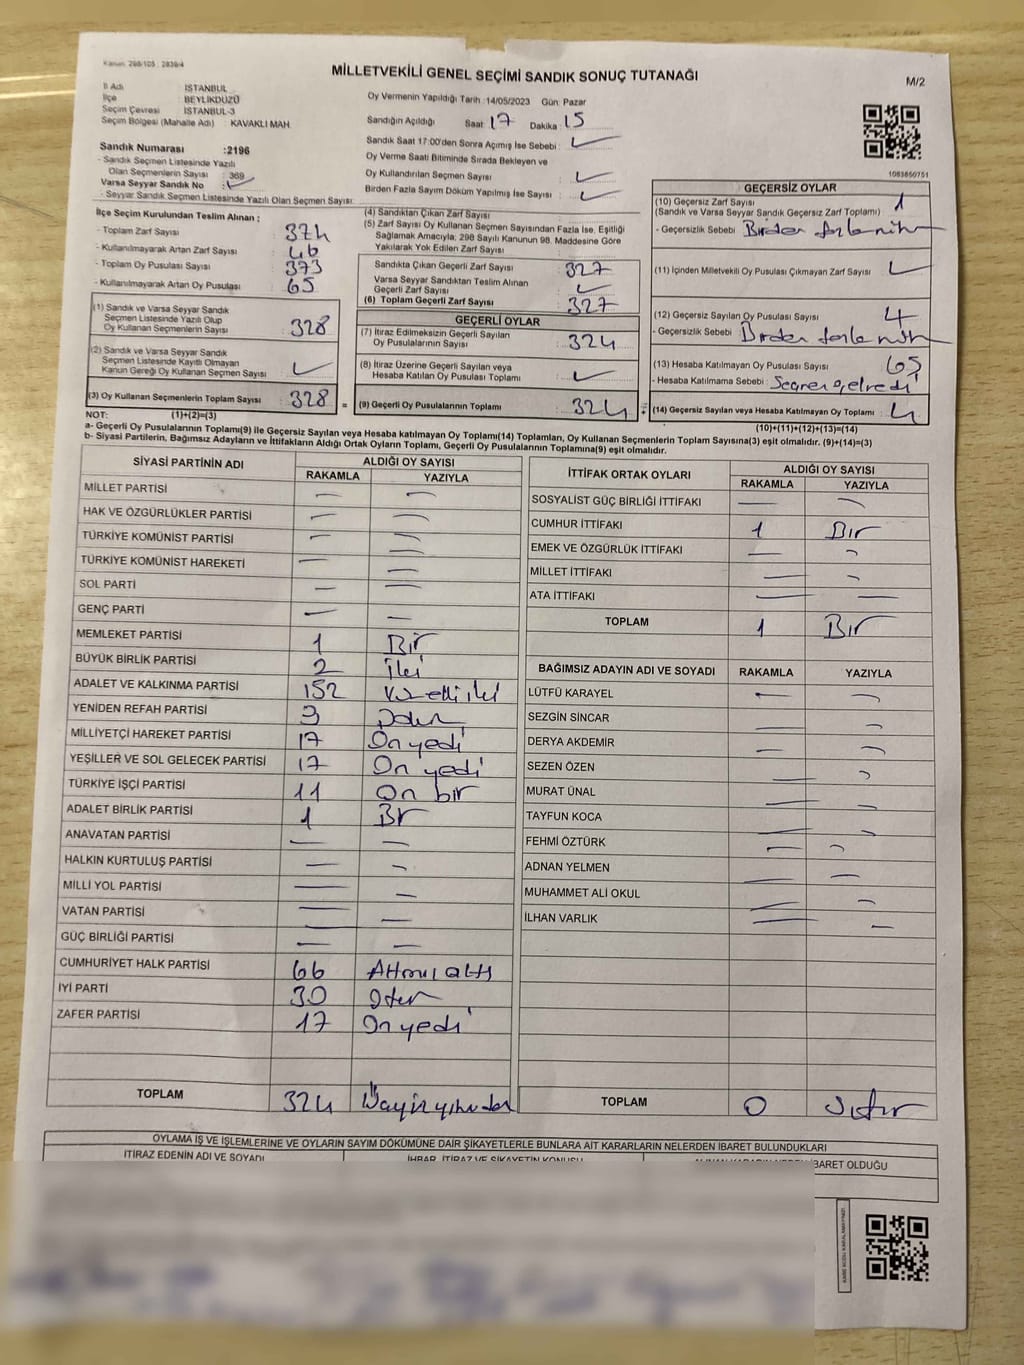 Kanun: 298/105 : 2839/4
MİLLETVEKİLİ GENEL SEÇİMİ SANDIK SONUÇ TUTANAĞI
M/2
İl Adı : İSTANBUL
İlçe : BEYLİKDÜZÜ
Seçim Çevresi : İSTANBUL-3
Seçim Bölgesi (Mahalle Adı) : KAVAKLI MAH.
Oy Vermenin Yapıldığı Tarih :14/05/2023 Gün: Pazar
Sandığın Açıldığı Saat 17 Dakika 15
Sandık Saat 17:00'den Sonra Açımış İse Sebebi :
Oy Verme Saati Bitiminde Sırada Bekleyen ve
Oy Kullandırılan Seçmen Sayısı :
Birden Fazla Sayım Döküm Yapılmış İse Sayısı :
Sandık Numarası :2196
- Sandık Seçmen Listesinde Yazılı
Olan Seçmenlerin Sayısı : 369
Varsa Seyyar Sandık No :
- Seyyar Sandık Seçmen Listesinde Yazılı Olan Seçmen Sayısı:
1083850751
İlçe Seçim Kurulundan Teslim Alınan ;
- Toplam Zarf Sayısı : 374
- Kullanılmayarak Artan Zarf Sayısı : 46
- Toplam Oy Pusulası Sayısı : 373
- Kullanılmayarak Artan Oy Pusulası : 65
(1) Sandık ve Varsa Seyyar Sandık
Seçmen Listesinde Yazılı Olup
Oy Kullanan Seçmenlerin Sayısı : 328
(2) Sandık ve Varsa Seyyar Sandık
Seçmen Listesinde Kayıtlı Olmayan
Kanun Gereği Oy Kullanan Seçmen Sayısı :
(3) Oy Kullanan Seçmenlerin Toplam Sayısı : 328
(4) Sandıktan Çıkan Zarf Sayısı :
(5) Zarf Sayısı Oy Kullanan Seçmen Sayısından Fazla İse, Eşitliği
Sağlamak Amacıyla; 298 Sayılı Kanunun 98. Maddesine Göre
Yakılarak Yok Edilen Zarf Sayısı :
Sandıkta Çıkan Geçerli Zarf Sayısı : 327
Varsa Seyyar Sandıktan Teslim Alınan
Geçerli Zarf Sayısı :
(6) Toplam Geçerli Zarf Sayısı : 327
GEÇERLİ OYLAR
(7) İtiraz Edilmeksizin Geçerli Sayılan
Oy Pusulalarının Sayısı : 324
(8) İtiraz Üzerine Geçerli Sayılan veya
Hesaba Katılan Oy Pusulası Toplamı :
(9) Geçerli Oy Pusulalarının Toplamı : 324
GEÇERSİZ OYLAR
(10) Geçersiz Zarf Sayısı : 1
(Sandık ve Varsa Seyyar Sandık Geçersiz Zarf Toplamı)
- Geçersizlik Sebebi : Birden fazla
(11) İçinden Milletvekili Oy Pusulası Çıkmayan Zarf Sayısı :
(12) Geçersiz Sayılan Oy Pusulası Sayısı : 4
- Geçersizlik Sebebi : Birden fazla
(13) Hesaba Katılmayan Oy Pusulası Sayısı : 65
- Hesaba Katılmama Sebebi : Seçmen gelmedi
(14) Geçersiz Sayılan veya Hesaba Katılmayan Oy Toplamı : 4
NOT: (1)+(2)=(3)
(10)+(11)+(12)+(13)=(14)
a- Geçerli Oy Pusulalarının Toplamı(9) ile Geçersiz Sayılan veya Hesaba katılmayan Oy Toplamı(14) Toplamları, Oy Kullanan Seçmenlerin Toplam Sayısına(3) eşit olmalıdır. (9)+(14)=(3)
b- Siyasi Partilerin, Bağımsız Adayların ve İttifakların Aldığı Ortak Oyların Toplamı, Geçerli Oy Pusulalarının Toplamına(9) eşit olmalıdır.
SİYASİ PARTİNİN ADI
ALDIĞI OY SAYISI
RAKAMLA YAZIYLA
MİLLET PARTİSİ
HAK VE ÖZGÜRLÜKLER PARTİSİ
TÜRKİYE KOMÜNİST PARTİSİ
TÜRKİYE KOMÜNİST HAREKETİ
SOL PARTİ
GENÇ PARTİ
MEMLEKET PARTİSİ 1 Bir
BÜYÜK BİRLİK PARTİSİ 2 İki
ADALET VE KALKINMA PARTİSİ 152 Yüz elli iki
YENİDEN REFAH PARTİSİ 3
MİLLİYETÇİ HAREKET PARTİSİ 17 On yedi
YEŞİLLER VE SOL GELECEK PARTİSİ 17 On yedi
TÜRKİYE İŞÇİ PARTİSİ 11 On bir
ADALET BİRLİK PARTİSİ 1 Bir
ANAVATAN PARTİSİ
HALKIN KURTULUŞ PARTİSİ
MİLLİ YOL PARTİSİ
VATAN PARTİSİ
GÜÇ BİRLİĞİ PARTİSİ
CUMHURİYET HALK PARTİSİ 66 Altmış altı
İYİ PARTİ 30 Otuz
ZAFER PARTİSİ 17 On yedi
TOPLAM 324
İTTİFAK ORTAK OYLARI
ALDIĞI OY SAYISI
RAKAMLA YAZIYLA
SOSYALİST GÜÇ BİRLİĞİ İTTİFAKI
CUMHUR İTTİFAKI 1 Bir
EMEK VE ÖZGÜRLÜK İTTİFAKI
MİLLET İTTİFAKI
ATA İTTİFAKI
TOPLAM 1 Bir
BAĞIMSIZ ADAYIN ADI VE SOYADI RAKAMLA YAZIYLA
LÜTFÜ KARAYEL
SEZGİN SİNCAR
DERYA AKDEMİR
SEZEN ÖZEN
MURAT ÜNAL
TAYFUN KOCA
FEHMİ ÖZTÜRK
ADNAN YELMEN
MUHAMMET ALİ OKUL
İLHAN VARLIK
TOPLAM 0 Sıfır
OYLAMA İŞ VE İŞLEMLERİNE VE OYLARIN SAYIM DÖKÜMÜNE DAİR ŞİKAYETLERLE BUNLARA AİT KARARLARIN NELERDEN İBARET BULUNDUKLARI
İTİRAZ EDENİN ADI VE SOYADI
İHBAR, İTİRAZ VE ŞİKAYETİN KONUSU
İBARET OLDUĞU